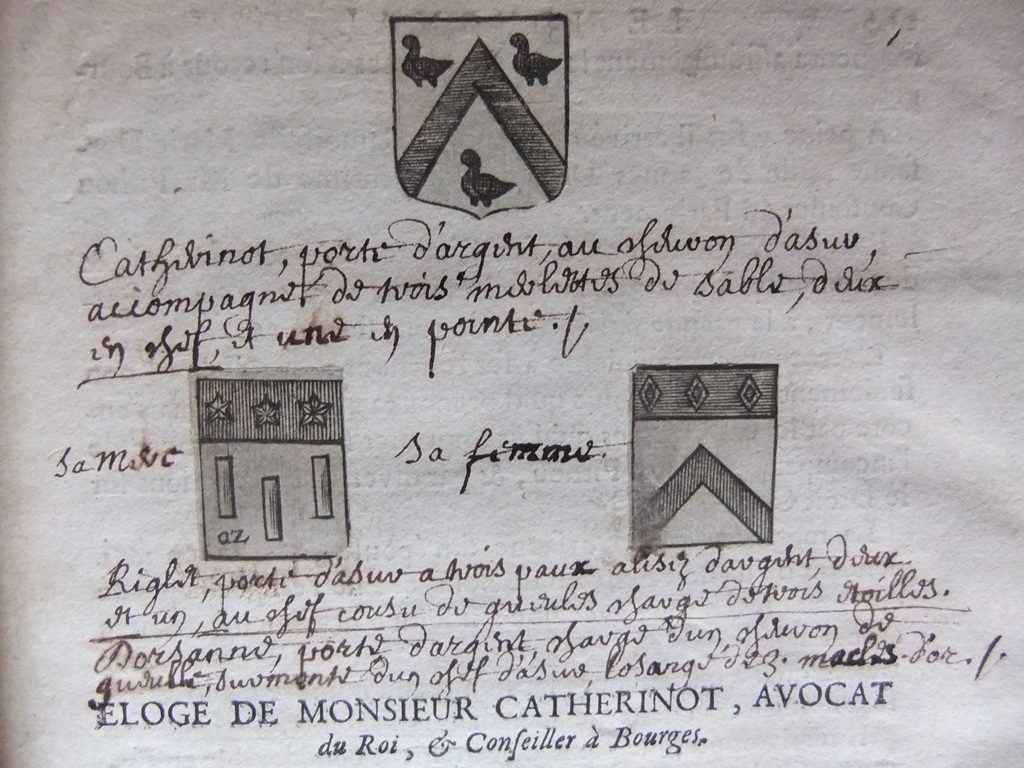 Catherinot, porte d'argent, au chevron d'asur,
accompagné de trois merlettes de sable, deux
en chef, et une en pointe./.
sa mere
sa femme.
az
Riglet, porte d'asur a trois paux alisez d'argent, deux
et un, au chef cousu de gueules chargé de trois etoilles.
Dorsanne, porte d'argent, chargé d'un chevron de
gueulle, surmonté d'un chef d'asur, losangé de 3. macles d'or./.
ELOGE DE MONSIEUR CATHERINOT, AVOCAT
du Roi, & Conseiller à Bourges.